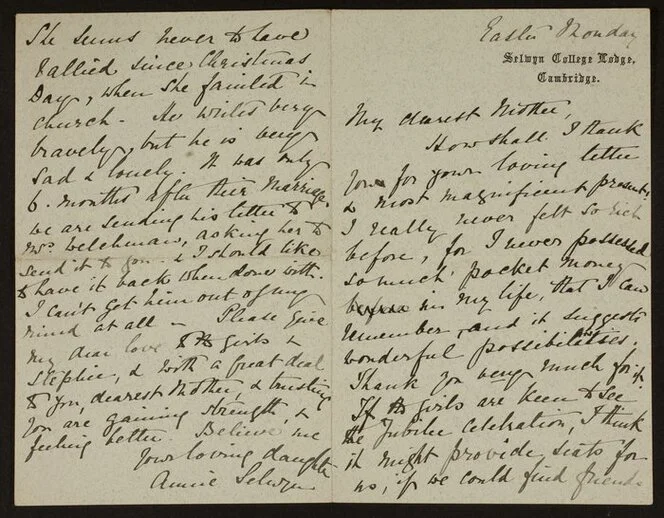 Easter Monday
Selwyn College Lodge,
Cambridge.
My dearest Mother,
How shall I thank
you for your loving letter
& most magnificent present?
I really never felt so rich
before, for I never possessed
so much pocket money
before in my life, that I can
remember, and it suggests
wonderful possibilities.
Thank you very much for it.
If the girls are keen to see
the Jubilee celebration, I think
it might provide seats for
us, if we could find friends
She seems never to have
rallied since Christmas
Day, when she fainted in
church - He writes very
bravely, but he is very
sad & lonely. It was only
6 months after their marriage.
We are sending his letter to
Mrs Welchman, asking her to
send it to you - & I should like
to have it back when done with.
I can't get him out of my
mind at all - Please give
my dear love to the girls &
Stephie, & with a great deal
to you, dearest Mother, & trusting
you are gaining strength, &
feeling better. Believe me
Your loving daughter
Annie Selwyn